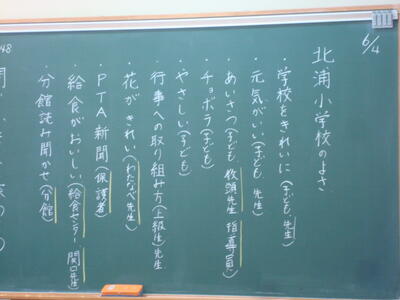 6/4
北浦小学校のよさ
・学校をきれいに(子ども、先生)
・元気がいい(子ども 先生)
・あいさつ(子ども 教頭先生 指導員)
・チョボラ(子ども)
・やさしい(子ども)
・行事への取り組み方(上級生)先生
・花がきれい(わたなべ先生)
・PTA新聞(保護者)
・給食がおいしい(給食センター 関口先生)
・分館読み聞かせ(分館)
48